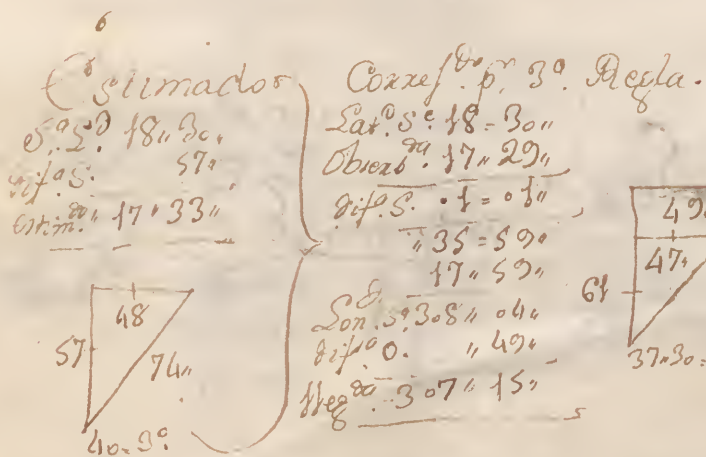 6
Estimados
S.ª L.ᵈ 18„ 30„
dif.ª S. 57„
Estim.ᵈᵃ 17„ 33„
48
57
74„
40=3º
Corref.ᵈᵒ pʳ 3ª Regla.
Lat.ᵈ S.ª 18=30„
Obserb.ᵈᵃ 17„ 29„
dif.ª S. „1=01„
„35=59„
17„ 59„
Lon.ᵈ S.ª 308„ 04„
dif.ª O. „49„
Lleg.ᵈᵃ 307„ 15„
49
47„
61
37„30=